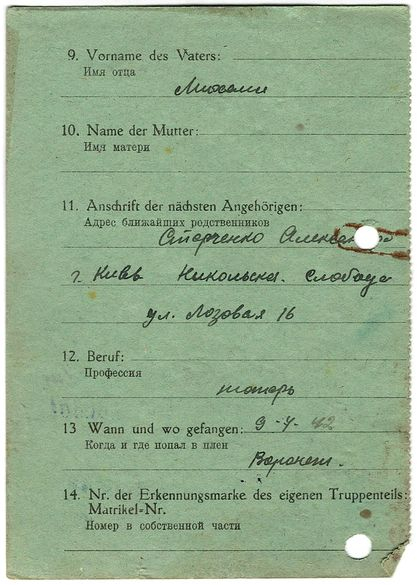 9. Vorname des Vaters:
Имя отца
Михаил
10. Name der Mutter:
Имя матери
11. Anschrift der nächsten Angehörigen:
Адрес ближайших родственников
Старченко
г. Киев Никольска. слобода
ул. Лозовая 16
12. Beruf:
Профессия
13 Wann und wo gefangen: 9-7-42
Когда и где попал в плен
Воронеж.
14. Nr. der Erkennungsmarke des eigenen Truppenteils:
Matrikel-Nr.
Номер в собственной части